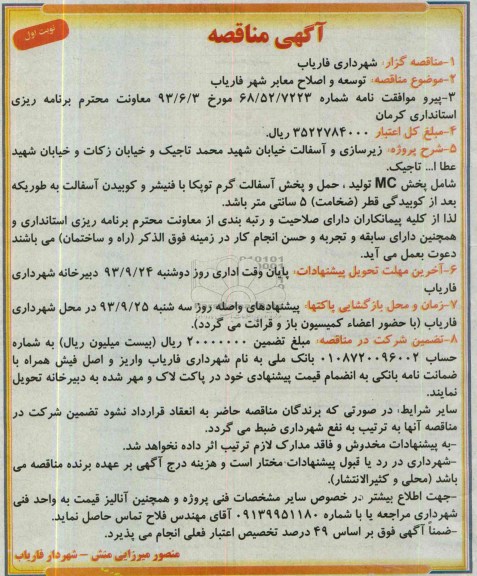 نوبت اول
آگهی مناقصه
۱-مناقصه گزار: شهرداری فاریاب
۲-موضوع مناقصه: توسعه و اصلاح معابر شهر فاریاب
۳-پیرو موافقت نامه شماره ۶۸/۵۲/۷۲۲۳ مورخ ۹۳/۶/۳ معاونت محترم برنامه ریزی
استانداری کرمان
۴-مبلغ کل اعتبار ۳۵۲۲۷۸۴۰۰۰ ریال.
۵-شرح پروژه: زیرسازی و آسفالت خیابان شهید محمد تاجیک و خیابان زکات و خیابان شهید
عطا ا... تاجیک.
شامل پخش MC تولید ، حمل و پخش آسفالت گرم توپکا با فنیشر و کوبیدن آسفالت به طوریکه
بعد از کوبیدگی قطر (ضخامت) ۵ سانتی متر باشد.
لذا از کلیه پیمانکاران دارای صلاحیت و رتبه بندی از معاونت محترم برنامه ریزی استانداری و
همچنین دارای سابقه و تجربه و حسن انجام کار در زمینه فوق الذکر (راه و ساختمان) می باشند
دعوت بعمل می آید.
۶-آخرین مهلت تحویل پیشنهادات: پایان وقت اداری روز دوشنبه ۹۳/۹/۲۴ دبیرخانه شهرداری
فاریاب
۷-زمان و محل بازگشایی پاکتها: پیشنهادهای واصله روز سه شنبه ۹۳/۹/۲۵ در محل شهرداری
فاریاب (با حضور اعضاء کمیسیون باز و قرائت می گردد).
۸-تضمین شرکت در مناقصه: مبلغ تضمین ۲۰۰۰۰۰۰۰ ریال (بیست میلیون ریال) به شماره
حساب ۰۱۰۸۷۲۰۰۹۶۰۰۲ بانک ملی به نام شهرداری فاریاب واریز و اصل فیش همراه با
ضمانت نامه بانکی به انضمام قیمت پیشنهادی خود در پاکت لاک و مهر شده به دبیرخانه تحویل
نمایند.
سایر شرایط: در صورتی که برندگان مناقصه حاضر به انعقاد قرارداد نشود تضمین شرکت در
مناقصه آنها به ترتیب به نفع شهرداری ضبط می گردد.
-به پیشنهادات مخدوش و فاقد مدارک لازم ترتیب اثر داده نخواهد شد.
-شهرداری در رد یا قبول پیشنهادات مختار است و هزینه درج آگهی بر عهده برنده مناقصه می
باشد (محلی و کثیرالانتشار).
-جهت اطلاع بیشتر در خصوص سایر مشخصات فنی پروژه و همچنین آنالیز قیمت به واحد فنی
شهرداری مراجعه یا با شماره ۰۹۱۳۹۹۵۱۱۸۰ آقای مهندس فلاح تماس حاصل نماید.
-ضمناً آگهی فوق بر اساس ۴۹ درصد تخصیص اعتبار فعلی انجام می پذیرد.
منصور میرزایی منش - شهردار فاریاب